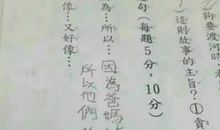 狗要渡河時，
）這則故事的主旨？①食
句（每題5分，10分）
為…所以…因為爸媽
所以他們
像…又好像…